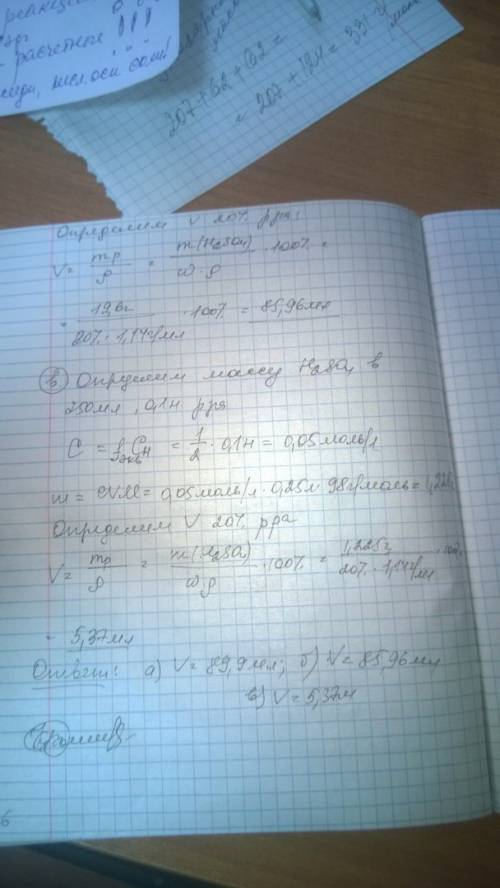 реакции
расчетные !!!
207 + 62 + 62 =
= 207 + 124 = 331 г/моль
Определим V 20% рра:
V = mр/ρ = m(H₂SO₄)/ω·ρ · 100% =
= 19,6г/20%·1,14г/мл · 100% = 85,96мл
в) Определим массу H₂SO₄ в
250мл, 0,1н рра
C = fэкв Cн = 1/2 · 0,1н = 0,05моль/л
m = CVM = 0,05моль/л · 0,25л · 98г/моль = 1,225г
Определим V 20% рра
V = mр/ρ = m(H₂SO₄)/ωρ · 100% = 1,225г/20%·1,14г/мл · 100%
= 5,37мл
Ответ: а) V = 89,9мл; б) V = 85,96мл
в) V = 5,37м
6